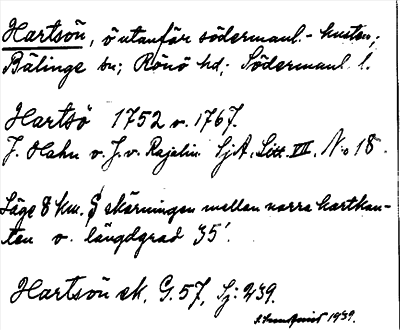 Hartsön, ö utanför södermanl.- kusten;
Bälinge sn; Rönö hd; Södermanl. l.
Hartsö 1752 o. 1767.
J. Hahn o. J. v. Rajalin SjA, Litt. VII, No 18.
Läge 8 km. S skärningen mellan norra kartkan-
ten o. längdgrad 35'.
Hartsön ek, G. 57, Sj: 239.
1939.